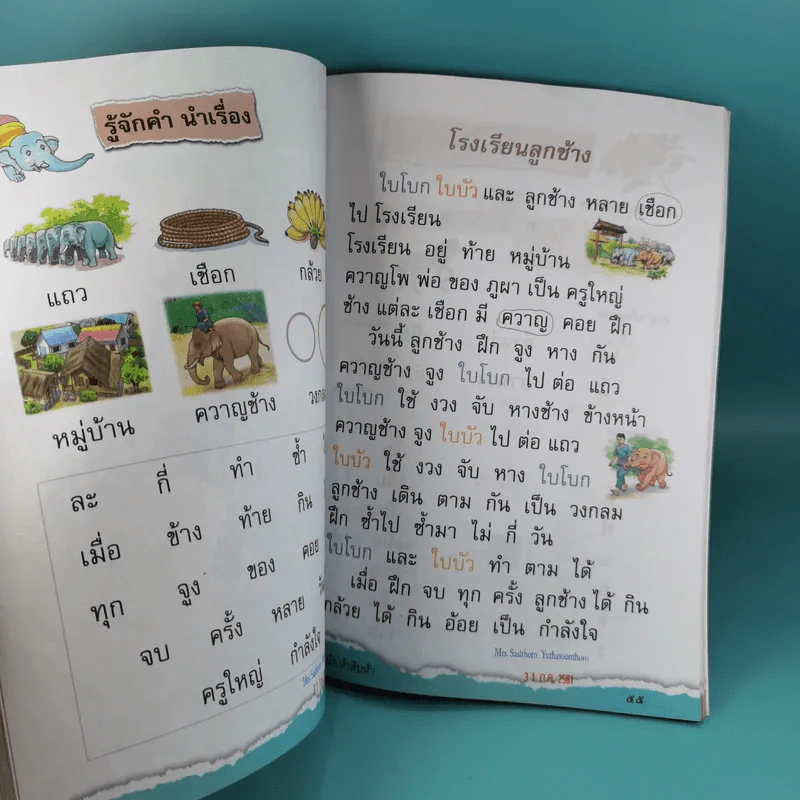 รู้จักคำ นำเรื่อง
แถว
เชือก
กล้วย
หมู่บ้าน
ควาญช้าง
ละ กี่ ทำ ซ้ำ
เมื่อ ข้าง ท้าย กิน
ทุก จูง ของ คอย
จบ ครั้ง หลาย
ครูใหญ่ กำลังใจ
โรงเรียนลูกช้าง
ใบโบก ใบบัว และ ลูกช้าง หลาย เชือก
ไป โรงเรียน
โรงเรียน อยู่ ท้าย หมู่บ้าน
ควาญโพ พ่อ ของ ภูผา เป็น ครูใหญ่
ช้าง แต่ละ เชือก มี ควาญ คอย ฝึก
วันนี้ ลูกช้าง ฝึก จูง หาง กัน
ควาญช้าง จูง ใบโบก ไป ต่อ แถว
ใบโบก ใช้ งวง จับ หางช้าง ข้างหน้า
ควาญช้าง จูง ใบบัว ไป ต่อ แถว
ใบบัว ใช้ งวง จับ หาง ใบโบก
ลูกช้าง เดิน ตาม กัน เป็น วงกลม
ฝึก ซ้ำไป ซ้ำมา ไม่ กี่ วัน
ใบโบก และ ใบบัว ทำ ตาม ได้
เมื่อ ฝึก จบ ทุก ครั้ง ลูกช้าง ได้ กิน
กล้วย ได้ กิน อ้อย เป็น กำลังใจ
Mrs. Sasithorn Yuthasoonthorn
3 1 ก.ค. 2561
๕๕